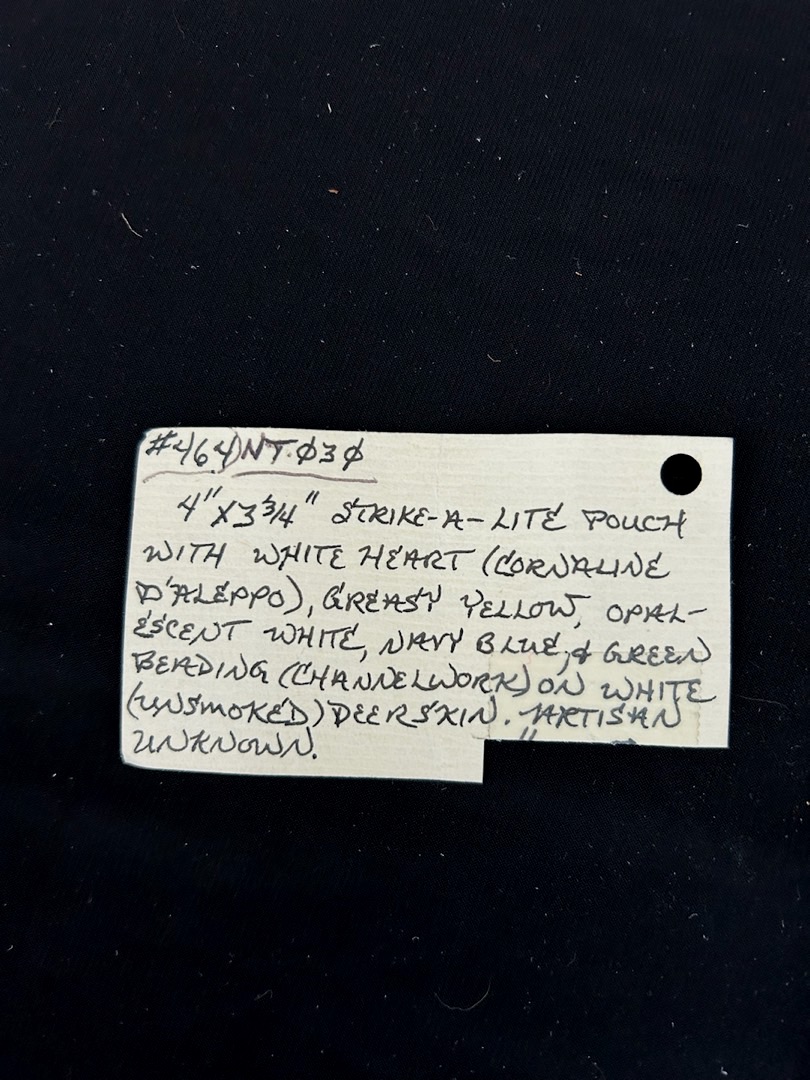 #464) NT.Ø3Ø
4" X 3 3/4" STRIKE-A-LITE POUCH
WITH WHITE HEART (CORNALINE
D'ALEPPO), GREASY YELLOW, OPAL-
ESCENT WHITE, NAVY BLUE, & GREEN
BEADING (CHANNELWORK) ON WHITE
(UNSMOKED) DEERSKIN. ARTISAN
UNKNOWN.